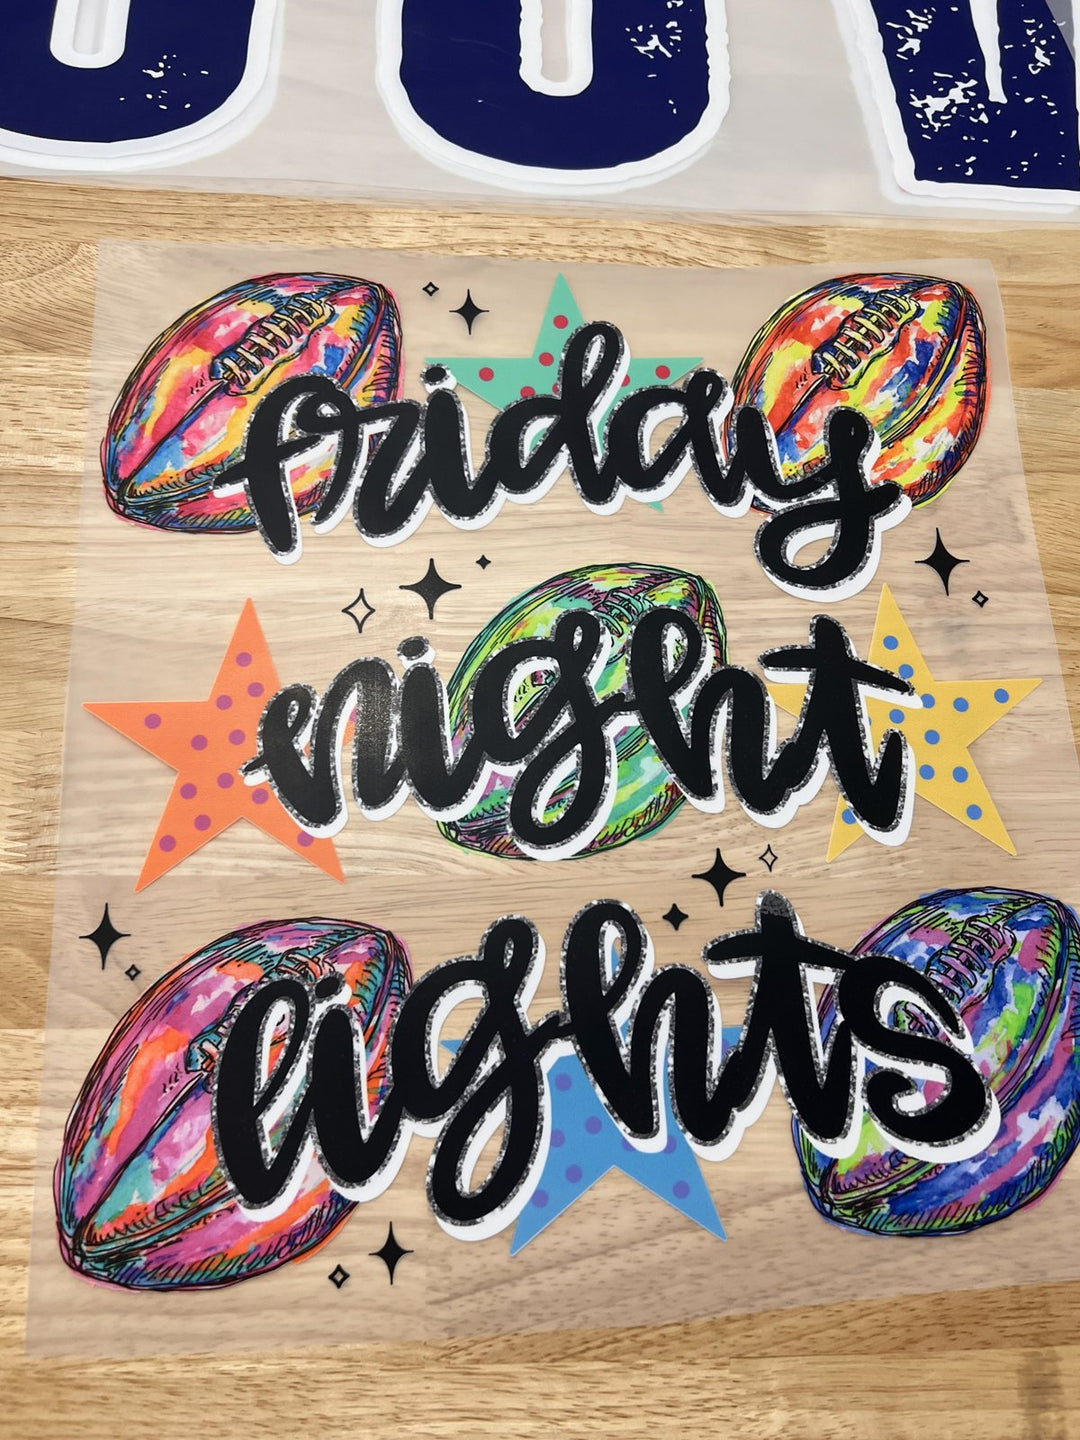 friday
night
lights